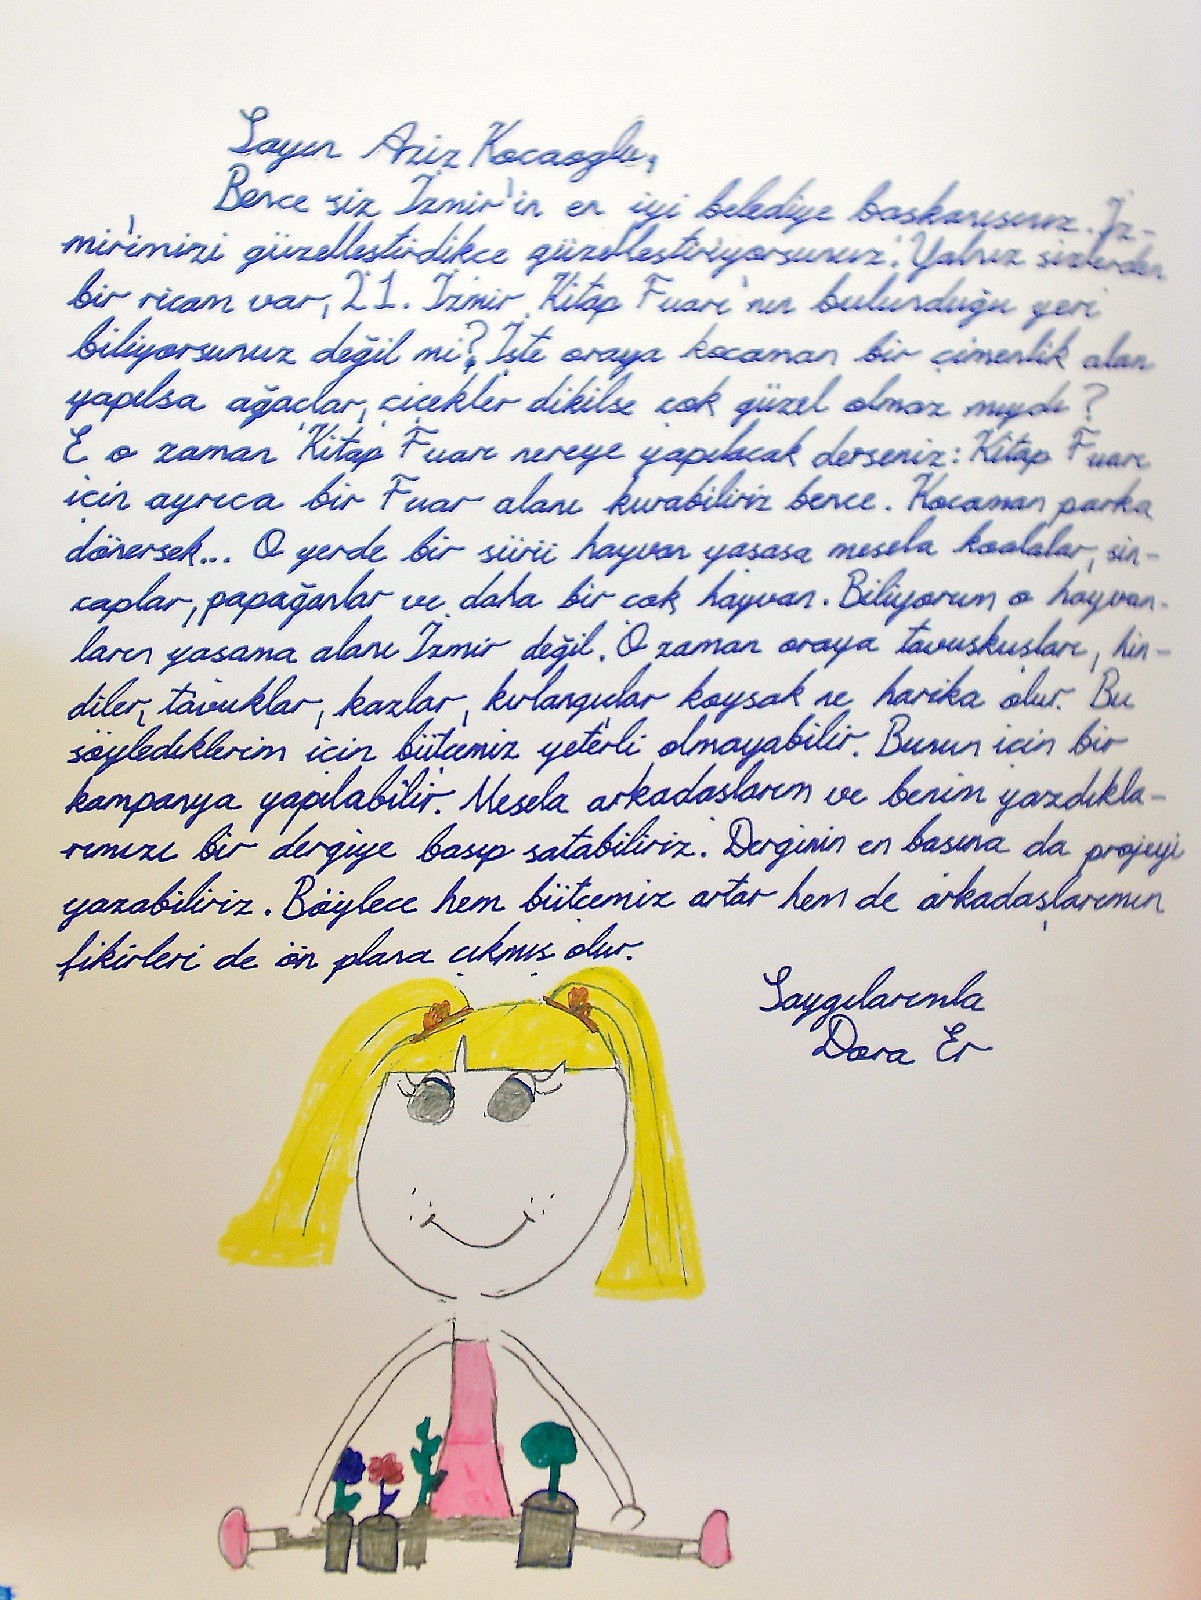 Sayın Aziz Kocaoğlu,
Bence siz İzmir'in en iyi belediye başkanısınız. İz-
mirimizi güzelleştirdikçe güzelleştiriyorsunuz. Yalnız sizlerden
bir ricam var, 21. İzmir Kitap Fuarı'nın bulunduğu yeri
biliyorsunuz değil mi? İşte oraya kocaman bir çimenlik alan
yapılsa ağaçlar, çiçekler dikilse çok güzel olmaz mıydı?
E o zaman Kitap Fuarı nereye yapılacak derseniz: Kitap Fuarı
için ayrıca bir Fuar alanı kurabiliriz bence. Kocaman parka
dönersek... O yerde bir sürü hayvan yaşasa mesela koalalar, sin-
caplar, papağanlar ve daha bir çok hayvan. Biliyorum o hayvan-
ların yaşama alanı İzmir değil. O zaman oraya tavuskuşları, hin-
diler, tavuklar, kazlar, kırlangıçlar koysak ne harika olur. Bu
söylediklerim için bütçemiz yeterli olmayabilir. Bunun için bir
kampanya yapılabilir. Mesela arkadaşlarım ve benim yazdıkla-
rımızı bir dergiye basıp satabiliriz. Derginin en başına da projeyi
yazabiliriz. Böylece hem bütçemiz artar hem de arkadaşlarımın
fikirleri de ön plana çıkmış olur.
Saygılarımla
Dora Er